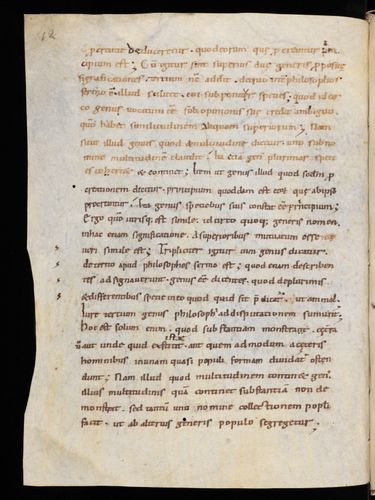 12
deducerent. quod eorum quę p creantur prin
cipium est; Cū igitur sint superius duę generis p positę
significationes. tertium nc̄ addit. de quo int̄ philosophos
sermo ē. illud scilicet. cui subponit̄ species; quod id cir
co genus uocatum eē sub opinionis suę credit ambiguo.
qm̄ habet similitudinem aliquam superiorum; Nam
sicut illud genus quod ad multitudinē dicitur. uno suo no
mine multitudinē claudit. Ita etiā gen̄ plurimas speci
es cohercet & continet; Item ut genus illud quod secdm̄ p
creationem dicitur. principium quoddam est eor̄ quę ab ipso
procreantur. Ita genus speciebus suis constat eē principium;
Ergo qm̄ utrisq; est simile. idcirco quoq; generis nomen
inhac etiam significatione. Asuperioribus mutuatum esse
ueri simile est; Tripliciter igitur cum genus dicatur.
de tertio apud philosophos sermo est; quod etiam describen
tes adsignauerunt. genus eē dicentes. quod depluribus
& differentibus specie ineo quod quid sit p̄dicat̄; ut animal.
Iure tertium genus philosophi addisputationem sumunt;
Hoc est solum enim. quod substantiam monstrat. cętera
ū aut unde quid existat. aut quem admodum acęteris
hominibus inunam quasi populi formam diuidat̄ osten
dunt; Nam illud quod multitudinem continet gen̄.
illius multitudinis quā continet substantiam non de
monstrat. sed tantū uno nomine collectionem popli
facit. ut ab alterius generis populo segregetur;